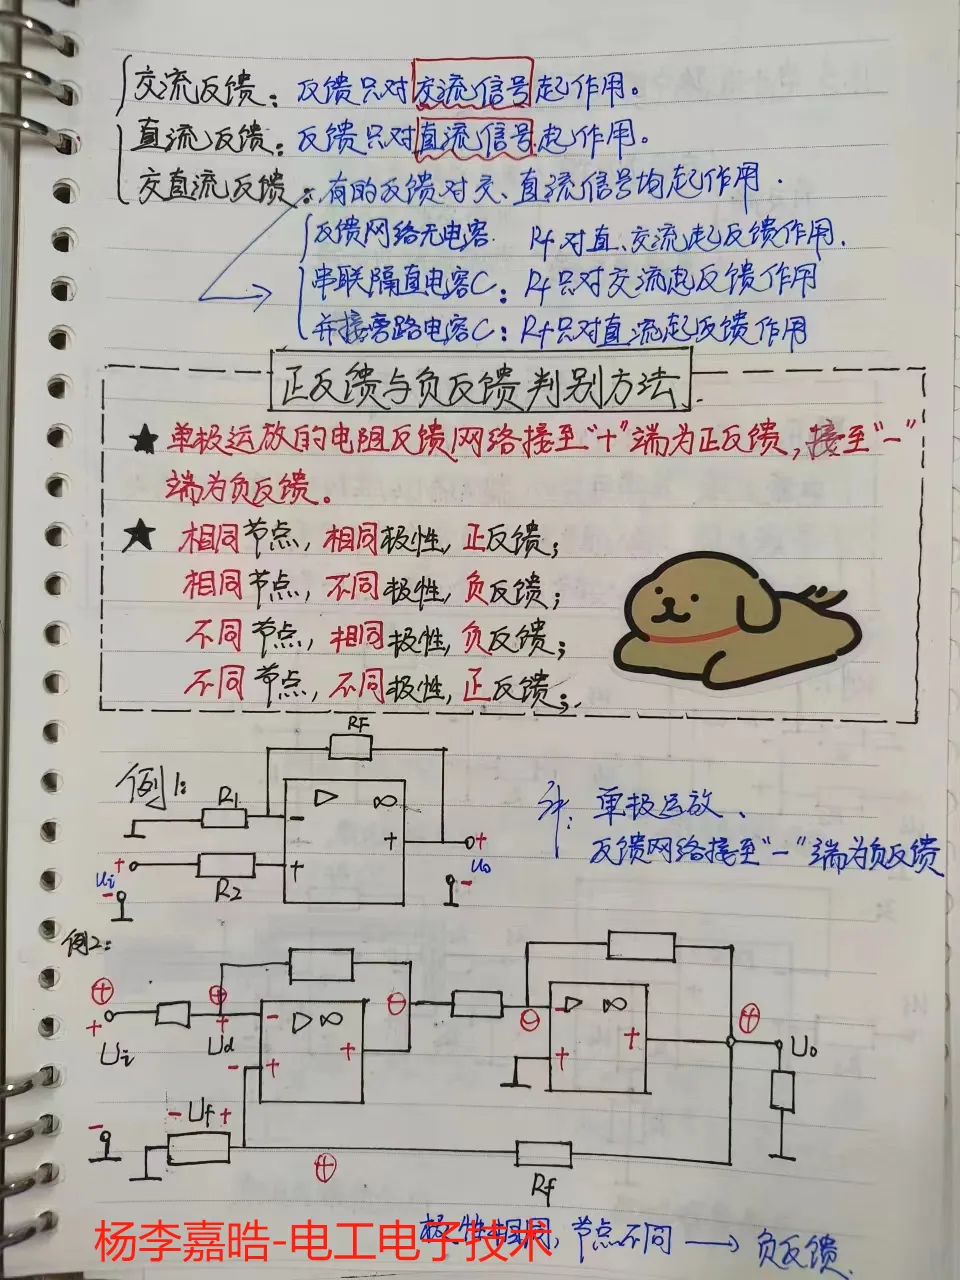 交流反馈：反馈只对交流信号起作用。
直流反馈：反馈只对直流信号起作用。
交直流反馈：有的反馈对交、直流信号均起作用.
反馈网络无电容 Rf对直、交流起反馈作用.
串联隔直电容C：Rf只对交流起反馈作用
并接旁路电容C：Rf只对直流起反馈作用
正反馈与负反馈判别方法.
★单极运放的电阻反馈网络接至“+”端为正反馈,接至“-”
端为负反馈。
★ 相同节点,相同极性,正反馈;
相同节点,不同极性,负反馈;
不同节点,相同极性,负反馈;
不同节点,不同极性,正反馈;
例1:
RF
R1
▷ ∞
-
+
+
R2
+
ui
-
+
uo
-
单极运放、
反馈网络接至“-”端为负反馈
例2:
⊕
+
Ui
-
⊕
+
Ud
-
-
▷ ∞
+
+
⊖
⊖
-
▷ ∞
+
+
⊕
Uo
- Uf +
⊕
Rf
极性相同,节点不同 → 负反馈.
杨李嘉皓-电工电子技术